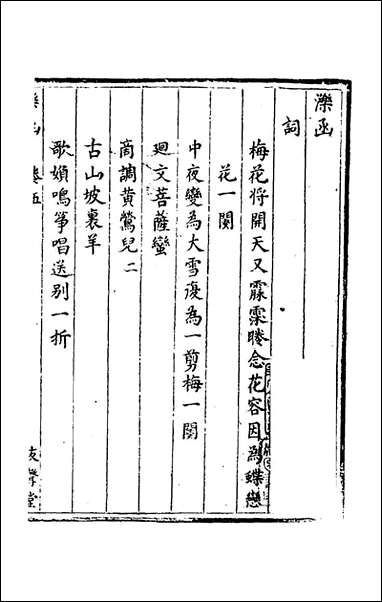 濼函
詞
梅花将開天又霢霂睠念花容因為蝶戀
花一闋
中夜變為大雪復為一剪梅一闋
廻文菩薩蠻
商調黄鶯兒二
古山坡裏羊
歌嬾鳴箏唱送别一折
濼函 卷五